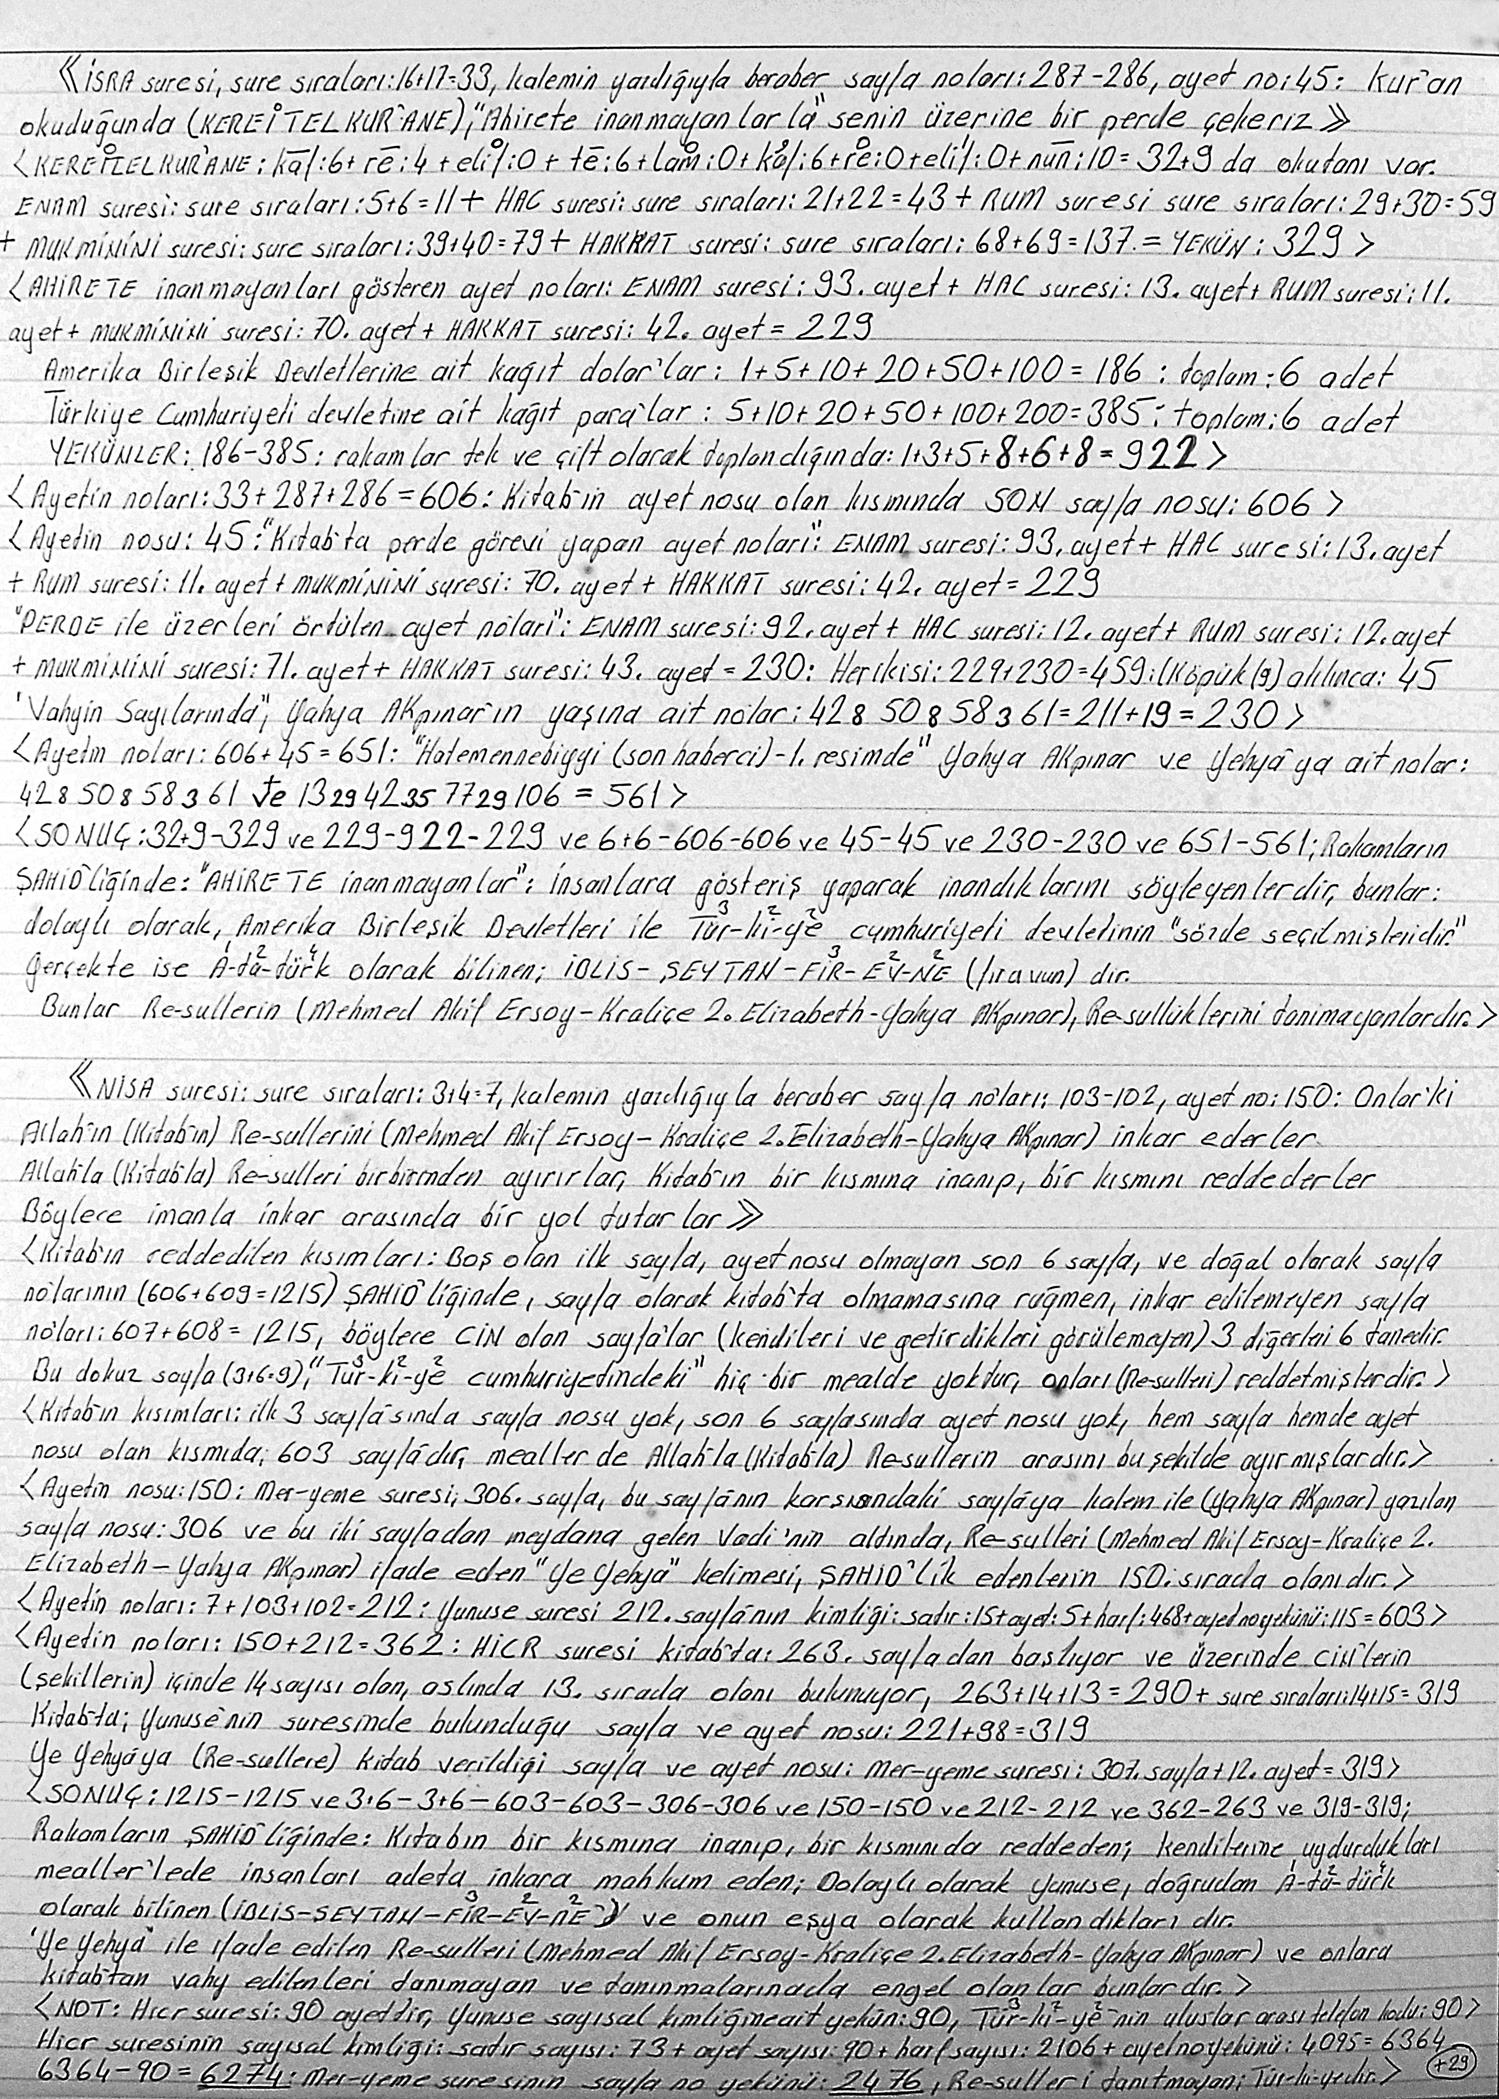 《İSRA suresi, sure sıraları:16+17=33, kalemin yazdığıyla beraber sayfa noları: 287-286, ayet no: 45: Kur'an
okuduğunda (KEREİTELKUR'ANE), "Ahirete inanmayanlarla" senin üzerine bir perde çekeriz》
<KEREİTELKUR'ANE: kāf:6+rē:4+elif:0+tē:6+lam:0+kāf:6+re:0+elif:0+nūn:10=32+9 da okutanı var.
ENAM suresi: sure sıraları:5+6=11+ HAC suresi: sure sıraları: 21+22=43+ RUM suresi sure sıraları: 29+30=59
+ MUKMİNİNİ suresi: sure sıraları: 39+40=79+ HAKKAT suresi: sure sıraları: 68+69=137.= YEKÜN: 329>
<AHİRETE inanmayanları gösteren ayet noları: ENAM suresi: 93. ayet+ HAC suresi: 13. ayet+ RUM suresi: 11.
ayet+ MUKMİNİNİ suresi: 70. ayet+ HAKKAT suresi: 42. ayet= 229
Amerika Birleşik Devletlerine ait kağıt dolar'lar: 1+5+10+20+50+100=186: toplam: 6 adet
Türkiye Cumhuriyeti devletine ait kağıt para'lar: 5+10+20+50+100+200=385: toplam: 6 adet
YEKÜNLER: 186-385: rakamlar tek ve çift olarak toplandığında: 1+3+5+8+6+8=922>
<Ayetin noları: 33+287+286=606: Kitab'ın ayet nosu olan kısmında SON sayfa nosu: 606>
<Ayetin nosu: 45: "Kitab'ta perde görevi yapan ayet noları": ENAM suresi: 93. ayet+ HAC suresi: 13. ayet
+ RUM suresi: 11. ayet+ MUKMİNİNİ suresi: 70. ayet+ HAKKAT suresi: 42. ayet= 229
"PERDE ile üzerleri örtülen ayet noları": ENAM suresi: 92. ayet+ HAC suresi: 12. ayet+ RUM suresi: 12. ayet
+ MUKMİNİNİ suresi: 71. ayet+ HAKKAT suresi: 43. ayet= 230: Her ikisi: 229+230=459: (Köpük (9) atılınca: 45
'Vahyin Sayılarında", Yahya AKpınar'ın yaşına ait nolar: 42 8 50 8 58 3 61=211+19=230>
<Ayetin noları: 606+45=651: "Hatemennebiyyi (son haberci)-1. resimde" Yahya AKpınar ve Yehyâ'ya ait nolar:
42 8 50 8 58 3 61 ve 13 29 42 35 77 29 106 = 561>
<SONUÇ: 32+9-329 ve 229-922-229 ve 6+6-606-606 ve 45-45 ve 230-230 ve 651-561; Rakamların
ŞAHİD'liğinde: "AHİRETE inanmayanlar": insanlara gösteriş yaparak inandıklarını söyleyenlerdir, bunlar:
dolaylı olarak, Amerika Birleşik Devletleri ile Tür³-ki²-ye² cumhuriyeti devletinin "sözde seçilmişleridir."
Gerçekte ise A¹-ta²-türk⁴ olarak bilinen; İBLİS-ŞEYTAN-FİR³-EV²-NE² (firavun) dır.
Bunlar Re-sullerin (Mehmed Akif Ersoy-Kraliçe 2. Elizabeth-Yahya AKpınar), Re-sullüklerini tanımayanlardır.>
《NİSA suresi: sure sıraları: 3+4=7, kalemin yazdığıyla beraber sayfa noları: 103-102, ayet no: 150: Onlar'ki
Allah'ın (Kitab'ın) Re-sullerini (Mehmed Akif Ersoy-Kraliçe 2. Elizabeth-Yahya AKpınar) inkar ederler
Allah'la (Kitab'la) Re-sulleri birbirinden ayırırlar, Kitab'ın bir kısmına inanıp, bir kısmını reddederler
Böylece imanla inkar arasında bir yol tutarlar》
<Kitab'ın reddedilen kısımları: Boş olan ilk sayfa, ayet nosu olmayan son 6 sayfa, ve doğal olarak sayfa
nolarının (606+609=1215) ŞAHİD'liğinde, sayfa olarak kitab'ta olmamasına rağmen, inkar edilemeyen sayfa
noları: 607+608=1215, böylece CİN olan sayfa'lar (kendileri ve getirdikleri görülemeyen) 3 diğerleri 6 tanedir.
Bu dokuz sayfa (3+6=9), "Tür³-ki²-ye² cumhuriyetindeki" hiç bir mealde yoktur, onları (Re-sulleri) reddetmişlerdir.>
<Kitab'ın kısımları: ilk 3 sayfa'sında sayfa nosu yok, son 6 sayfasında ayet nosu yok, hem sayfa hemde ayet
nosu olan kısmıda; 603 sayfa'dır, mealler de Allah'la (Kitab'la) Re-sullerin arasını bu şekilde ayırmışlardır.>
<Ayetin nosu: 150: Mer-yeme suresi; 306. sayfa, bu sayfa'nın karşısındaki sayfa'ya kalem ile (Yahya AKpınar) yazılan
sayfa nosu: 306 ve bu iki sayfadan meydana gelen Vadi'nin altında, Re-sulleri (Mehmed Akif Ersoy-Kraliçe 2.
Elizabeth-Yahya AKpınar) ifade eden "Ye Yehya" kelimesi, ŞAHİD'lik edenlerin 150. sırada olanıdır.>
<Ayetin noları: 7+103+102=212: Yunuse suresi 212. sayfa'nın kimliği: satır: 15+ayet: 5+harf: 468+ayet no yekünü: 115=603>
<Ayetin noları: 150+212=362: HİCR suresi kitab'ta: 263. sayfadan başlıyor ve üzerinde CİN'lerin
(şekillerin) içinde 14 sayısı olan, aslında 13. sırada olanı bulunuyor, 263+14+13=290+ sure sıraları: 14+15=319
Kitab'ta; Yunuse'nin suresinde bulunduğu sayfa ve ayet nosu: 221+98=319
Ye Yehya'ya (Re-sullere) kitab verildiği sayfa ve ayet nosu: Mer-yeme suresi: 307. sayfa+12. ayet=319>
<SONUÇ: 1215-1215 ve 3+6-3+6-603-603-306-306 ve 150-150 ve 212-212 ve 362-263 ve 319-319;
Rakamların ŞAHİD'liğinde: Kitabın bir kısmına inanıp, bir kısmınıda reddeden; kendilerine uydurdukları
mealler'lede insanları adeta inkara mahkum eden; Dolaylı olarak Yunuse, doğrudan A¹-ta²-türk⁴
olarak bilinen (İBLİS-ŞEYTAN-FİR³-EV²-NE²) ve onun eşya olarak kullandıkları dır.
'Ye Yehya" ile ifade edilen Re-sulleri (Mehmed Akif Ersoy-Kraliçe 2. Elizabeth-Yahya AKpınar) ve onlara
kitab'tan vahy edilenleri tanımayan ve tanınmalarınada engel olanlar bunlardır.>
<NOT: Hicr suresi: 90 ayettir, Yunuse sayısal kimliğine ait yekün: 90, Tür³-ki²-ye²'nin uluslar arası telefon kodu: 90>
Hicr suresinin sayısal kimliği: satır sayısı: 73+ ayet sayısı: 90+ harf sayısı: 2106+ ayet no yekünü: 4095=6364
6364-90=6274: Mer-yeme suresinin sayfa no yekünü: 2476, Re-sulleri tanıtmayan; Tür-ki-yedir.> +29